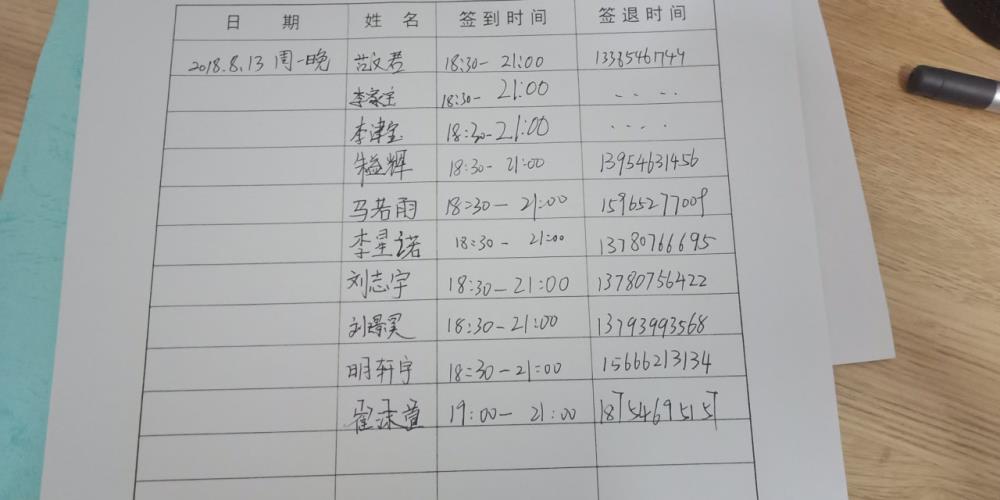 日 期 姓 名 签到时间 签退时间
2018.8.13 周一晚 范文君 18:30- 21:00 13385461744
李家宝 18:30- 21:00
李津宝 18:30-21:00
朱益辉 18:30- 21:00 13954631456
马若雨 18:30- 21:00 15965277009
李星诺 18:30- 21:00 13780766695
刘志宇 18:30-21:00 13780756422
18:30-21:00 13793993568
明轩宇 18:30-21:00 15666213134
19:00- 21:00 18754695157